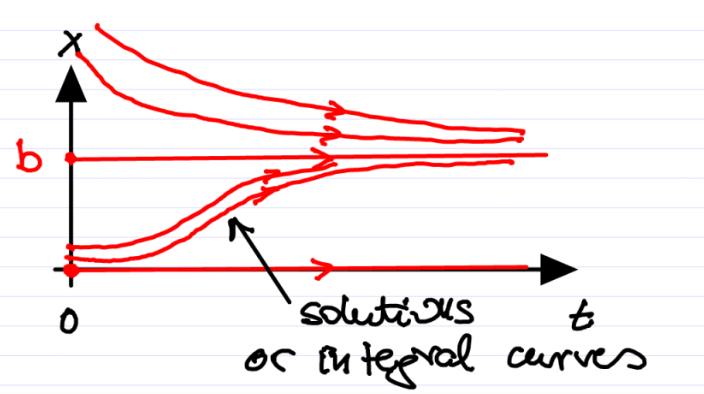 x
b
0
t
solutions
or integral curves